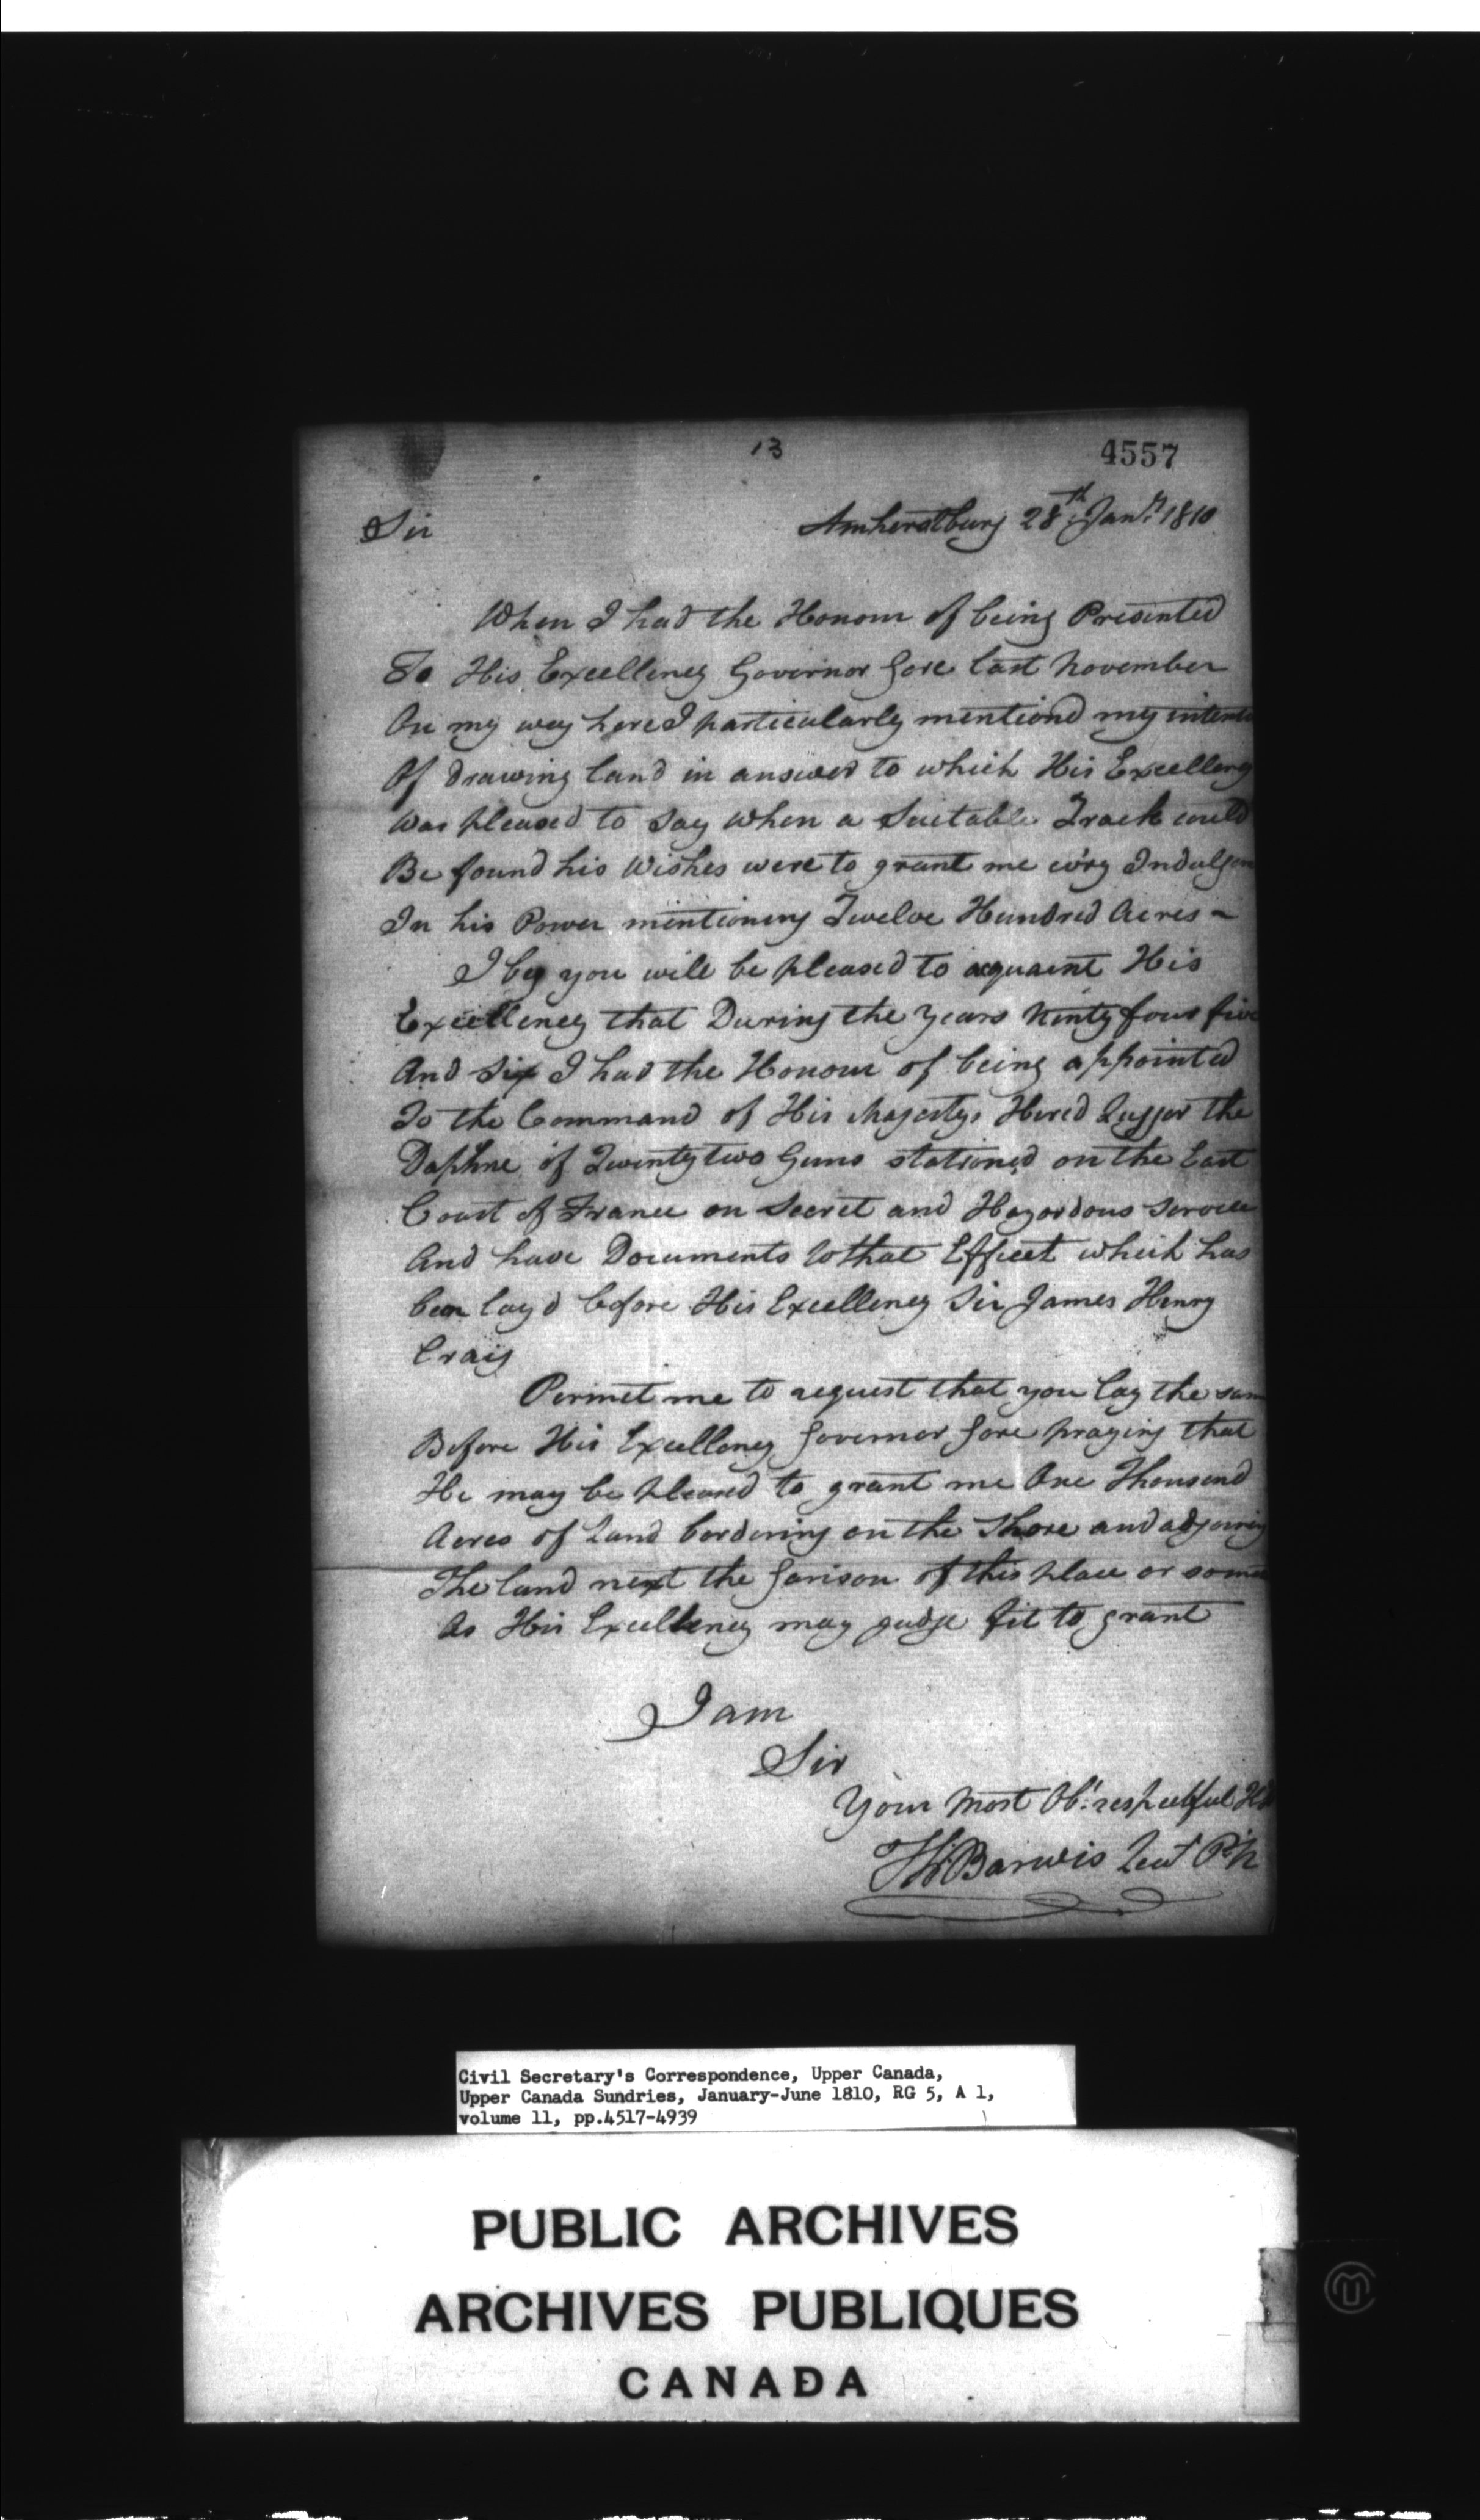 13
4557
Sir
Amherstburg 28th Jany 1810
When I had the Honour of being Presented
To His Excellency Governor Gore last November
On my way here I particularly mentiond my
Of drawing land in answer to which His Excellency
Was pleased to say when a Suitable Track could
Be found his Wishes were to grant me ev'ry
In his Power mentioning Twelve Hundred Acres ~
I beg you will be pleased to acquaint His
Excellency that During the Years Ninty four five
And Six I had the Honour of being appointed
To the Command of His Majestys Hired Lugger the
Daphne of Twenty two Guns stationed on the East
Coast of France on Secret and Hazordous Service
And have Documents to that Effect which has
been lay'd before His Excellency Sir James Henry
Craig
Permit me to request that you lay the same
Before His Excellency Governor Gore praying that
He may be pleased to grant me One Thousand
Acres of Land bordering on the Shore and adjoining
The land next the Garison of this place or some
As His Excellency may judge fit to grant
I am
Sir
Your Most Obt respectful
Barwis Leut
Civil Secretary's Correspondence, Upper Canada,
Upper Canada Sundries, January-June 1810, RG 5, A 1,
volume 11, pp.4517-4939
PUBLIC ARCHIVES
ARCHIVES PUBLIQUES
CANADA